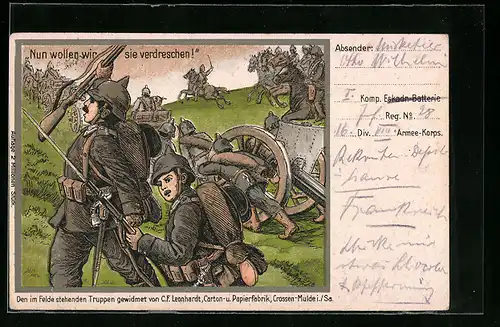 „Nun wollen wir sie verdreschen!"
Auflage 2 Millionen Stück.
Den im Felde stehenden Truppen gewidmet von C.F. Leonhardt, Carton- u. Papierfabrik, Crossen-Mulde i./Sa.
Absender: Musketier
Otto Wilhelm
Komp. Eskadn-Batterie
Reg. No. 28
16. Div. VIII. Armee-Korps.
Rekruten-Depot
Frankreich